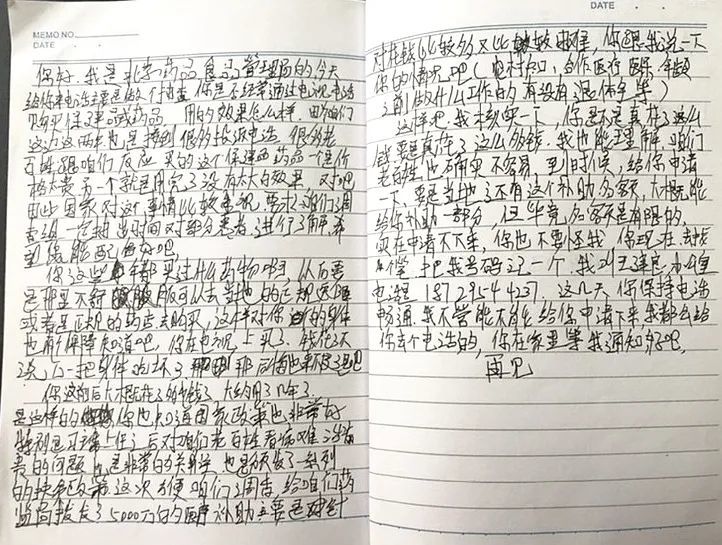 MEMO NO.
DATE
你好,我是北京药品食品管理局的,今天
给你来电话主要是做个抽查,你是不是经常通过电视、电话
购买保健品或药品 用的效果怎么样,因为咱们
这边这两年也是接到很多投诉电话 很多老
百姓跟咱们反应 买的这个保健品药品一个是价
格太贵 另一个就是用完了没有太大的效果,对吧
因此国家对这个事情比较重视,要求咱们调
查组一定抽出时间对部分患者进行了解,希
望你能配合好吧
你这些年都买过什么药物吃,从后要
是哪里不舒服可以去当地的正规医院
或者是正规的药店去购买,这样对你的身体
也有保障知道吧,你在电视上买了,钱花了不
说,万一把身体吃坏了 那后悔也来不及了吧
你这前后大概花了多少钱了 大约用了几年了
是这样的 你也知道国家政策也非常好
特别是习主席上任之后对咱们老百姓看病难
的问题 也是非常的关注 也是颁发了一系列
的扶
这次 咱们调查 给咱们药
监局拨发了5000万的 补助主要是针
DATE
对花钱比较多又比较 你跟我说一下
你的情况吧(电视购物,合作医疗 医保 年龄
之前做什么工作的 有没有退休金等)
这样吧,我核实一下,你是不是真花了这么
钱,要是真花了这么多钱,我也能理解,咱们
老百姓也确实不容易,到时候,给你申请
一下,要是当地还有这个补助名额,大概能
给你补助一部分,但毕竟名额是有限的,
现在申请不下来,你也不要怪我,你现在去找
个笔 把我号码记一个,我叫王 办公室
电话是 187 2954 4237. 这几天,你保持电话
畅通,我不管能不能给你申请下来,我都会给
你去个电话的,你在家里等我通知好吧,
再见